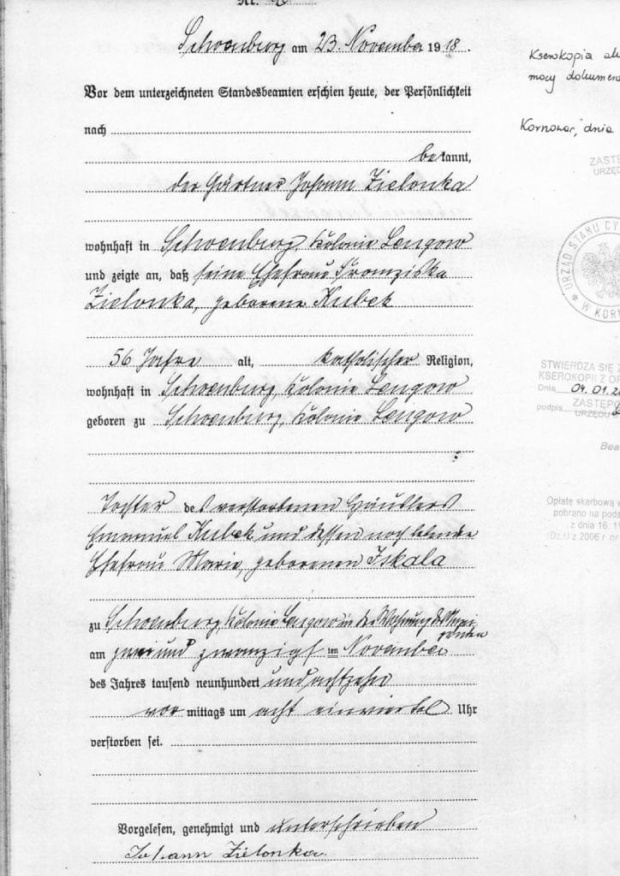 Nr.
Schoenburg am 23. November 1918.
Vor dem unterzeichneten Standesbeamten erschien heute, der Persönlichkeit
nach
bekannt,
der Gärtner Johann Zielonka
wohnhaft in Schoenburg, Kolonie Lengow
und zeigte an, daß seine Ehefrau Franziska
Zielonka, geborene Kubek
56 Jahre alt, katholischer Religion,
wohnhaft in Schoenburg, Kolonie Lengow
geboren zu Schoenburg, Kolonie Lengow
Tochter des verstorbenen Häuslers
Emanuel Kubek und dessen noch lebende
Ehefrau Marie, geborenen Iskala
zu Schoenburg, Kolonie Lengow in der Wohnung
am zwei und zwanzigsten November
des Jahres tausend neunhundert und achtzehn
vor mittags um acht einviertel Uhr
verstorben sei.
Vorgelesen, genehmigt und unterschrieben
Johann Zielonka
Kserokopia
mocy dokumen
Kornowac, dnia
ZASTĘ
URZĘD
URZĄD STANU CY
W KOR
STWIERDZA SIĘ Z
KSEROKOPII Z OR
Dnia 04.01.20
podpis ZASTĘPC
URZĘDU
Bea
Opłatę skarbową w
pobrano na pods
z dnia 16. 11
(Dz.U z 2006 r. nr